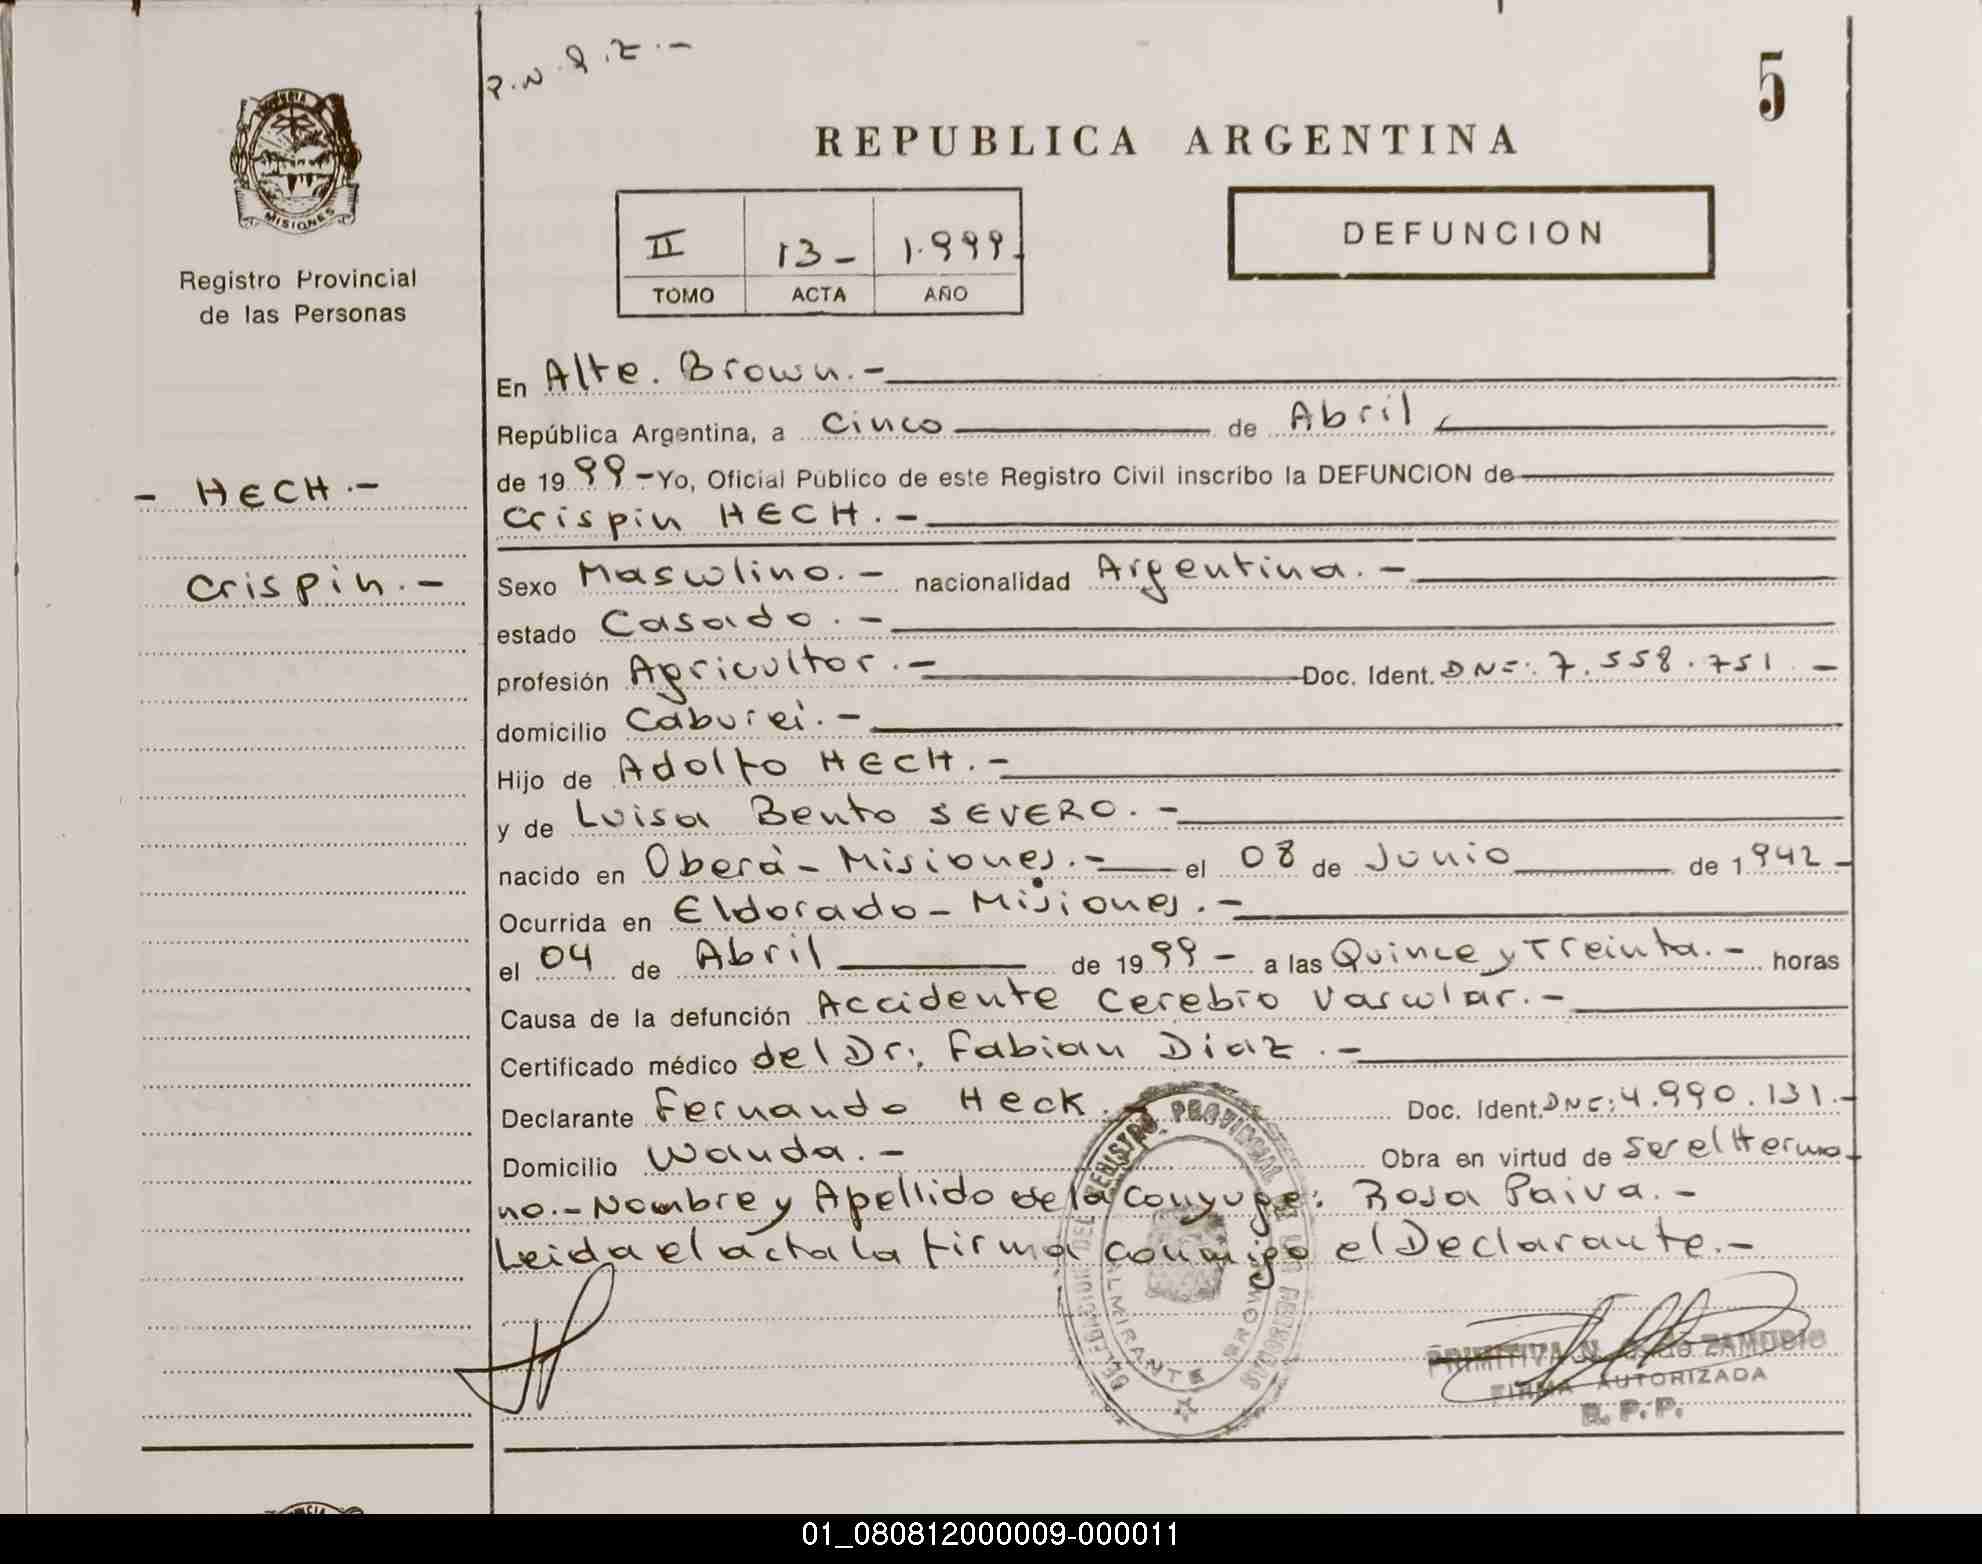 5
REPUBLICA ARGENTINA
MISIONES
Registro Provincial
de las Personas
II 13- 1.999.
TOMO ACTA AÑO
DEFUNCION
- HECH.-
Crispin.-
En Alte. Brown.-
República Argentina, a Cinco de Abril
de 1999 - Yo, Oficial Público de este Registro Civil inscribo la DEFUNCION de
Crispin HECH.-
Sexo Masculino.- nacionalidad Argentina.-
estado Casado.-
profesión Agricultor.- Doc. Ident. DNI: 7.558.751.-
domicilio Caburei.-
Hijo de Adolfo HECH.-
y de Luisa Bento SEVERO.-
nacido en Oberá - Misiones.- el 08 de Junio de 1942-
Ocurrida en Eldorado - Misiones.-
el 04 de Abril de 1999- a las Quince y Treinta.- horas
Causa de la defunción Accidente Cerebro Vascular.-
Certificado médico del Dr: Fabian Diaz.-
Declarante Fernando Heck.- Doc. Ident. DNI: 4.990.131.-
Domicilio Wanda.- Obra en virtud de ser el Herma
no.- Nombre y Apellido de la Conyuge: Rosa Paiva.-
Leida el acta la firma conmigo el Declarante.-
REGISTRO PROVINCIAL DE LAS PERSONAS
ALMIRANTE BROWN
PRIMITIVA N. de ZAMUDIO
FIRMA AUTORIZADA
R. P. P.
01_080812000009-000011